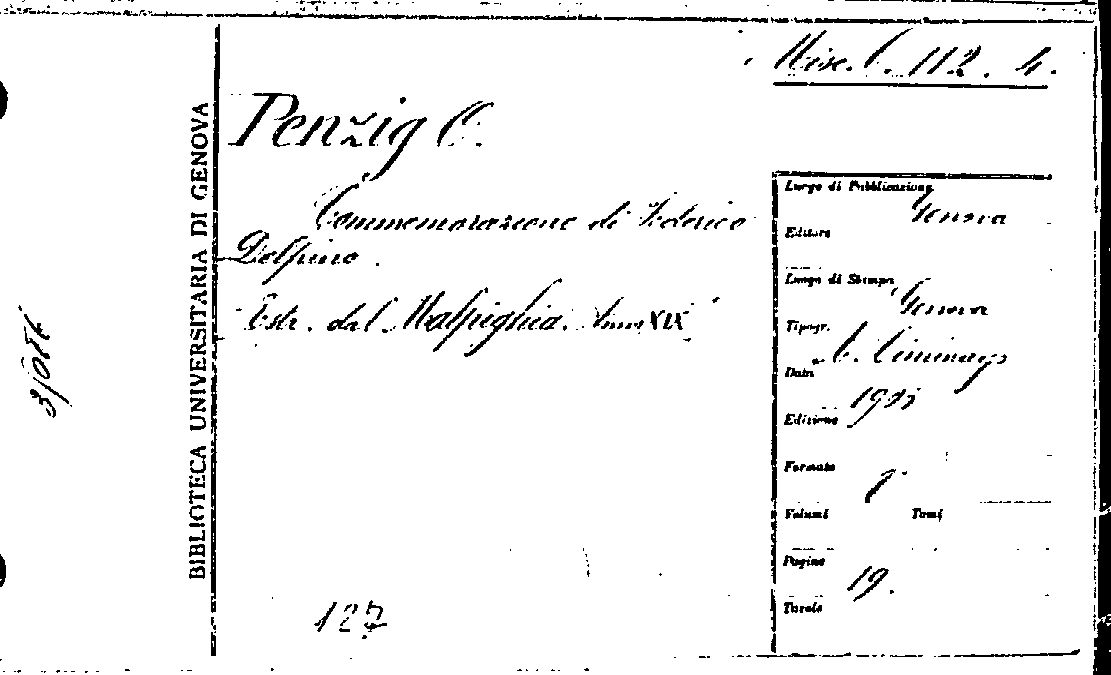 Misc. C. 112. 4.
Penzig O.
Commemorazione di Federico
Delpino.
Estr. dal Malpighia. Anno XIX
BIBLIOTECA UNIVERSITARIA DI GENOVA
Luogo di Pubblicazione
Genova
Editore
Luogo di Stampa
Genova
Tipogr.
C. Ciminago
Data
Edizione
Formato
8°
Volumi Tomi
Pagine
19.
Tavole
127